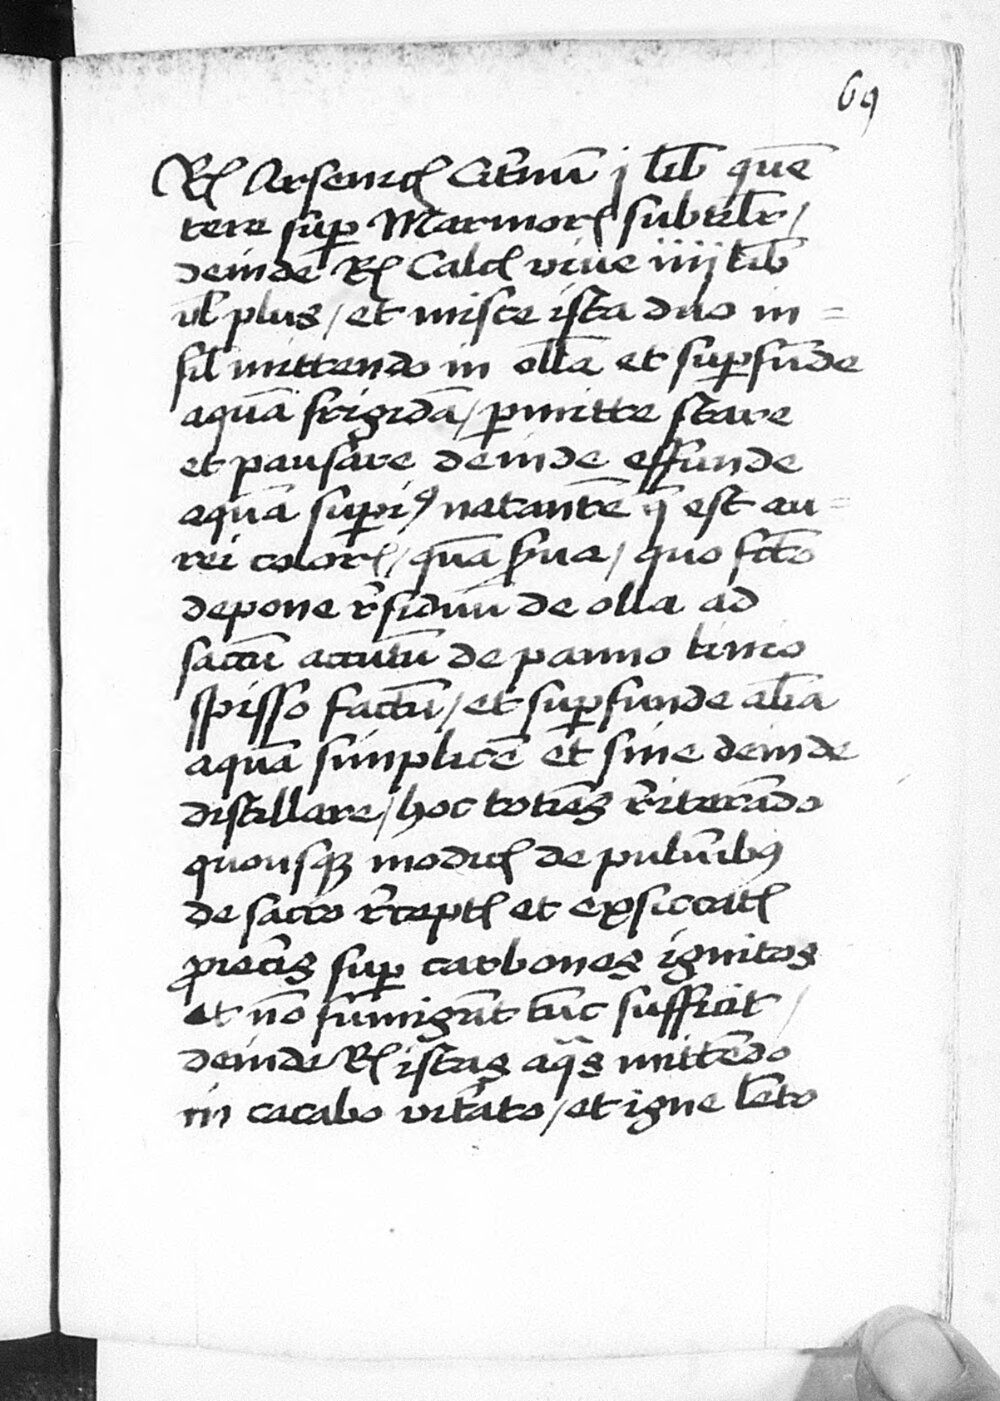 69
Rꝭ Arsenicꝭ Citrinū j lib̄ quē
tere suꝑ Marmorꝭ subtilr̄ /
deinde Rꝭ Calcꝭ viue iiij lib̄
vl̄ plus / et misce ista duo in =
sil̄ mittendo in olla et suꝑfūde
aquā frigidā / ꝑmitte stare
et pausare deinde effunde
aquā suꝑiꝰ natantē q̄ est au =
rei colorꝭ / quā ẜua / quo fcō
depone r̄siduū de olla ad
saccū accutū de panno lineo
spisso factū / et suꝑfunde alīa
aquā simplicē et sine deinde
distillare / hoc totiēs r̄iterādo
quousqꝫ modicꝭ de puluīibꝰ
de sacco r̄ceptꝭ et exsiccatꝭ
ꝓiectis suꝑ carbones ignitos
et nō fumigāt tūc sufficit /
deinde Rꝭ istas aq̄s mittēdo
in cacabo vitr̄ato / et igne lēto